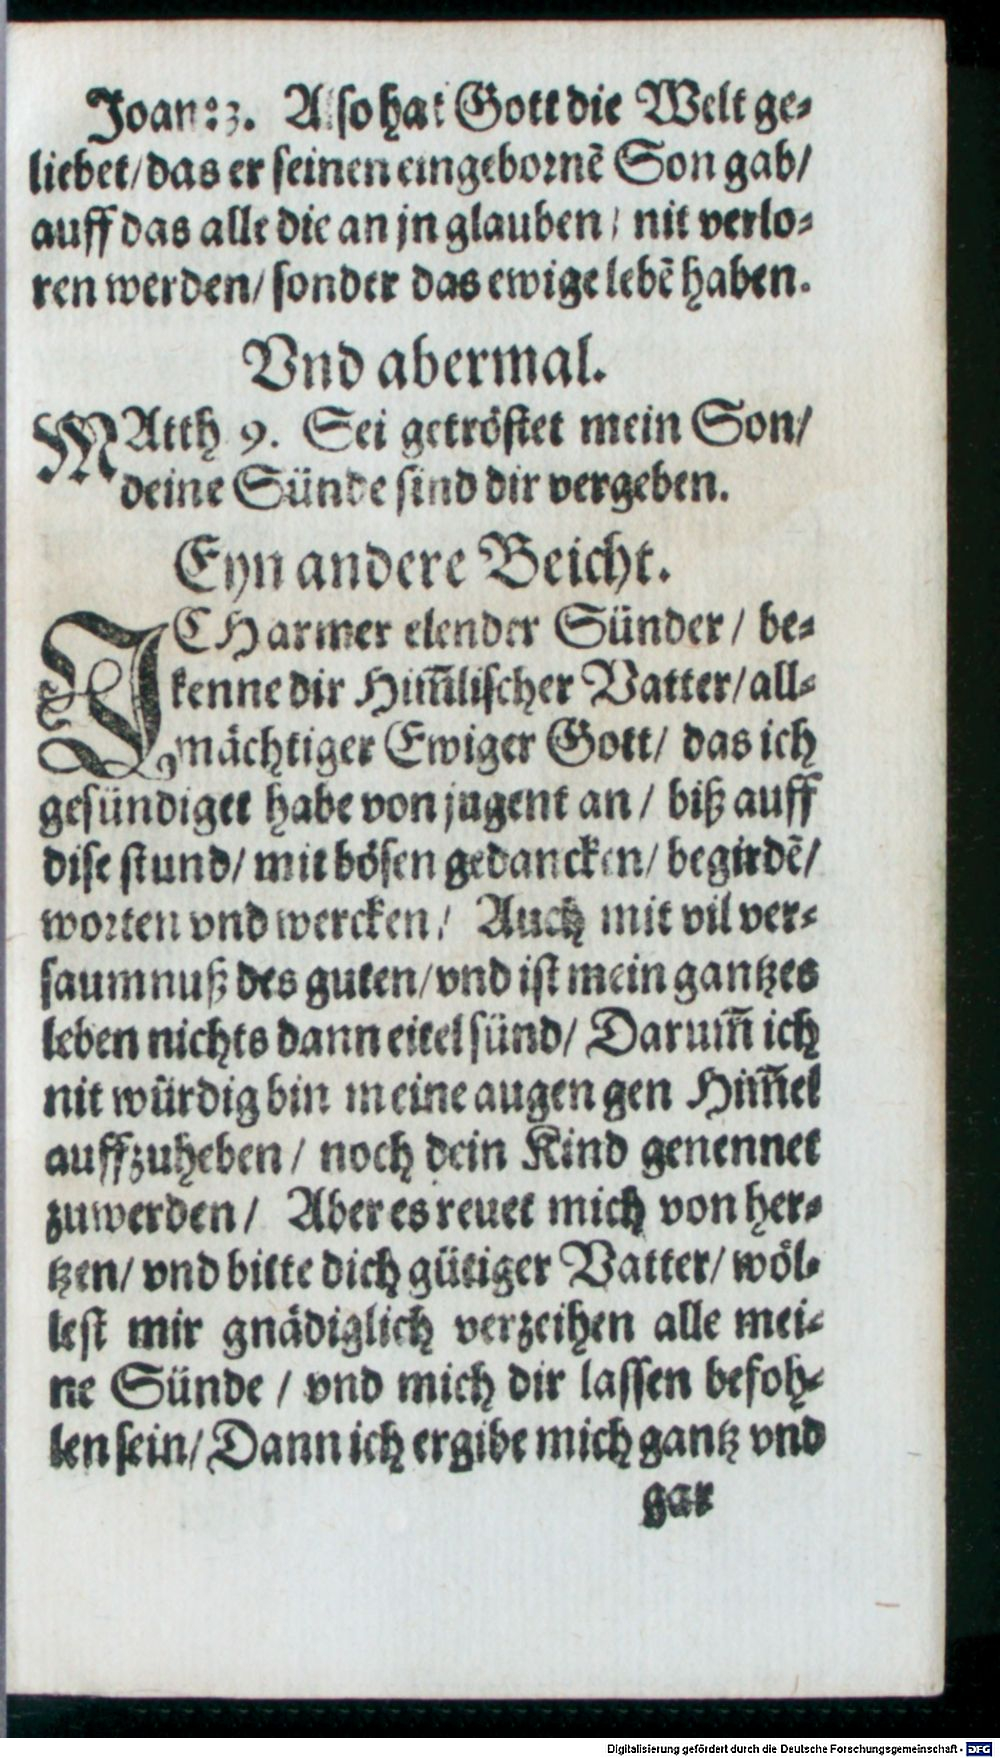 Joan: 3. Also hat Gott die Welt ge⸗
liebet/ das er seinen eingebornẽ Son gab/
auff das alle die an jn glauben/ nit verlo⸗
ren werden/ sonder das ewige lebẽ haben.
Vnd abermal.
MAtth 9. Sei getröstet mein Son/
deine Sünde sind dir vergeben.
Eyn andere Beicht.
ICH armer elender Sünder/ be⸗
kenne dir Him̃lischer Vatter/ all⸗
mächtiger Ewiger Gott/ das ich
gesündiget habe von jugent an/ biß auff
dise stund/ mit bösen gedancken/ begirdẽ/
worten vnd wercken/ Auch mit vil ver⸗
saumnuß des guten/ vnd ist mein gantzes
leben nichts dann eitel sünd/ Darum̃ ich
nit würdig bin meine augen gen Him̃el
auffzuheben/ noch dein Kind genennet
zuwerden/ Aber es reuet mich von her⸗
tzen/ vnd bitte dich gütiger Vatter/ wöl⸗
lest mir gnädiglich verzeihen alle mei⸗
ne Sünde/ vnd mich dir lassen befoh⸗
len sein/ Dann ich ergibe mich gantz vnd
gar
Digitalisierung gefördert durch die Deutsche Forschungsgemeinschaft - DFG